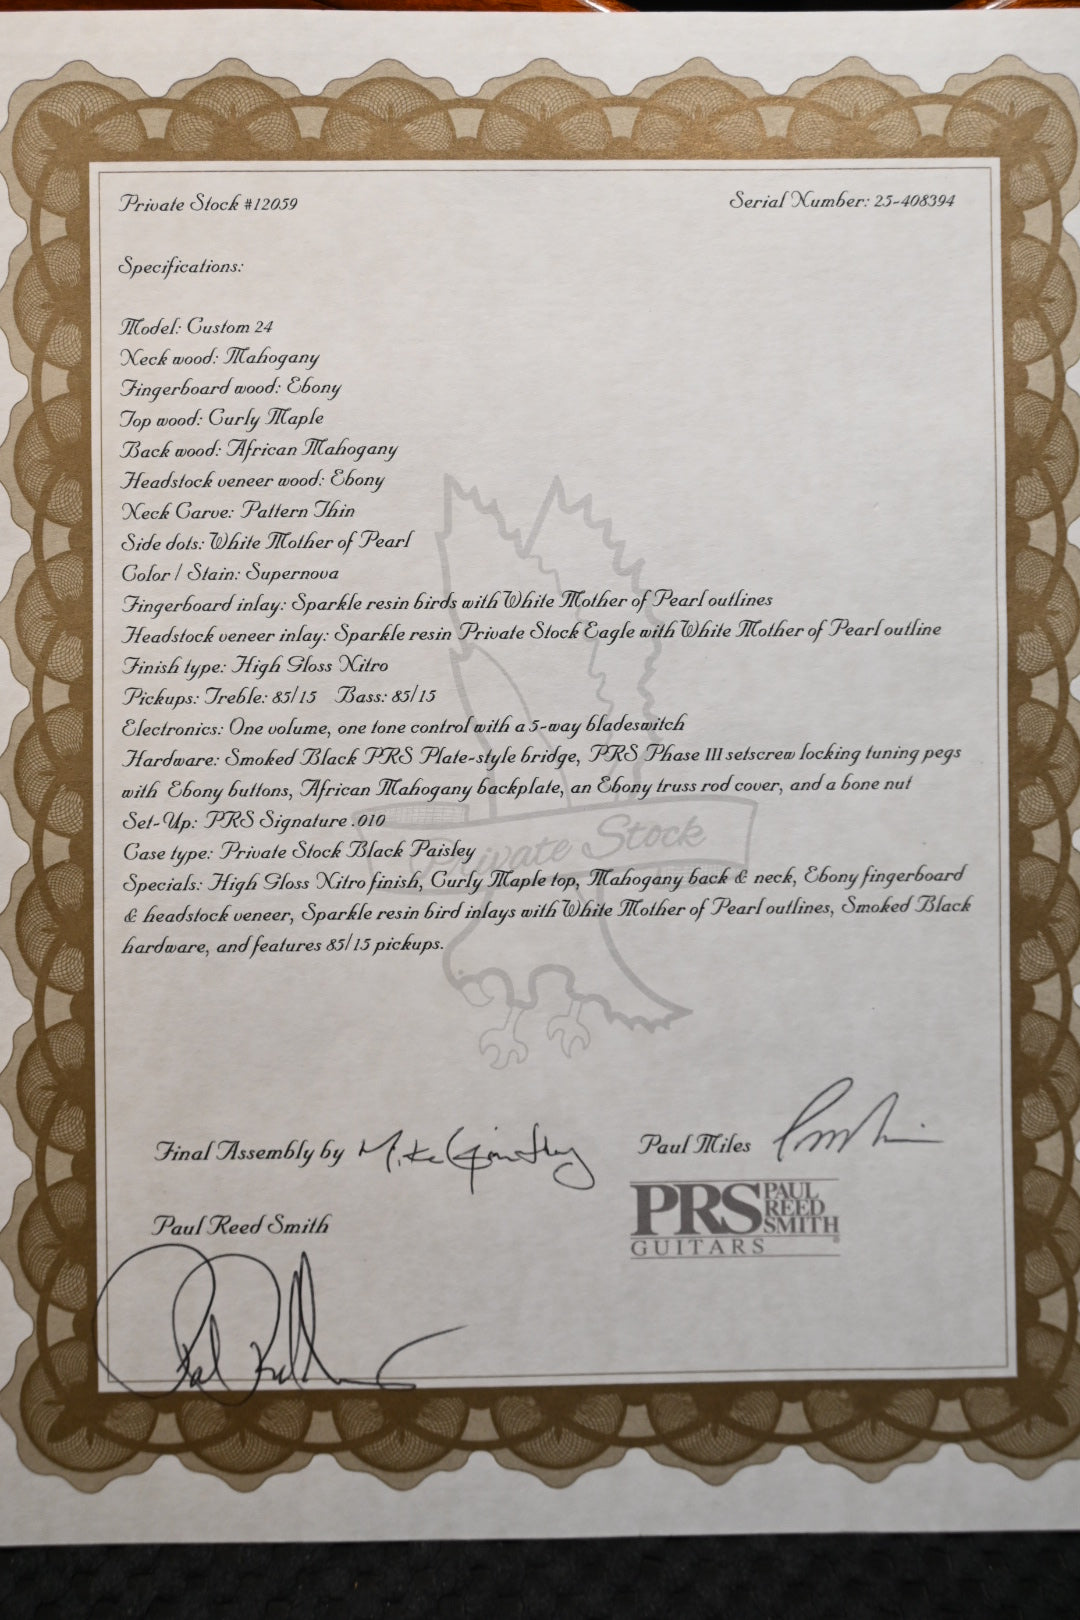 Private Stock #12059
Serial Number: 25-408394
Specifications:
Model: Custom 24
Neck wood: Mahogany
Fingerboard wood: Ebony
Top wood: Curly Maple
Back wood: African Mahogany
Headstock veneer wood: Ebony
Neck Carve: Pattern Thin
Side dots: White Mother of Pearl
Color / Stain: Supernova
Fingerboard inlay: Sparkle resin birds with White Mother of Pearl outlines
Headstock veneer inlay: Sparkle resin Private Stock Eagle with White Mother of Pearl outline
Finish type: High Gloss Nitro
Pickups: Treble: 85/15 Bass: 85/15
Electronics: One volume, one tone control with a 5-way bladeswitch
Hardware: Smoked Black PRS Plate-style bridge, PRS Phase III setscrew locking tuning pegs
with Ebony buttons, African Mahogany backplate, an Ebony truss rod cover, and a bone nut
Set-Up: PRS Signature .010
Case type: Private Stock Black Paisley
Private Stock
Specials: High Gloss Nitro finish, Curly Maple top, Mahogany back & neck, Ebony fingerboard
& headstock veneer, Sparkle resin bird inlays with White Mother of Pearl outlines, Smoked Black
hardware, and features 85/15 pickups.
Final Assembly by Mike
Paul Miles
Paul Reed Smith
PRS PAUL REED SMITH
GUITARS